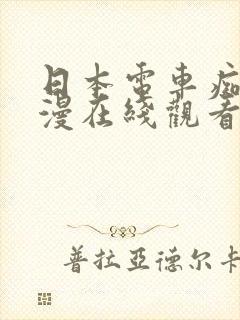 日本電車痴
漫在綫觀看
普拉亞德尔卡